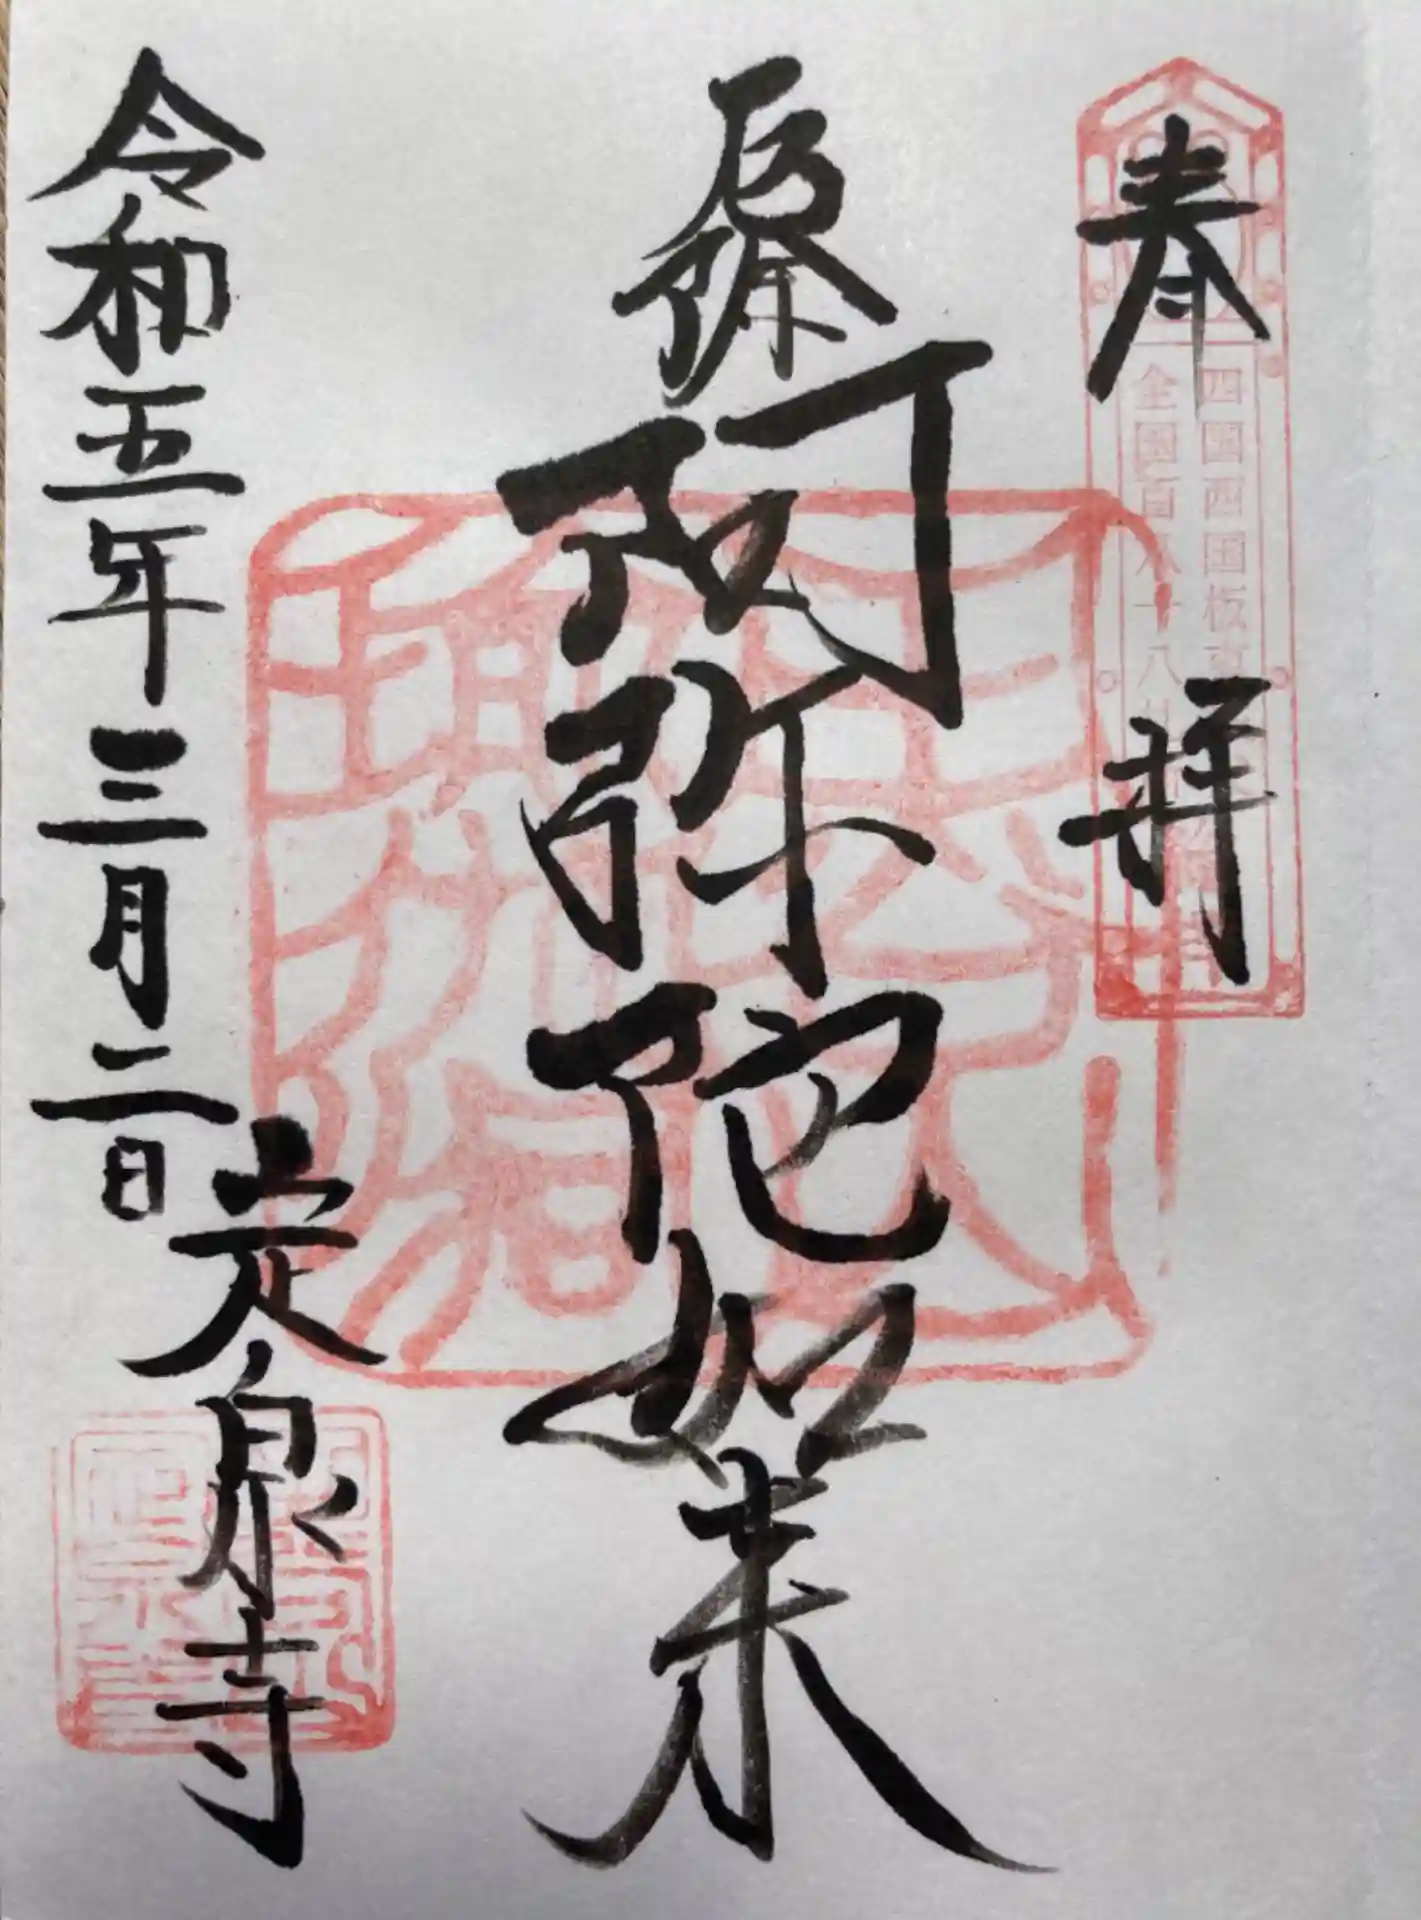 奉拝
四国西国板東
全国百八十八
厄除
阿弥陀如来
令和五年三月二日
定泉寺